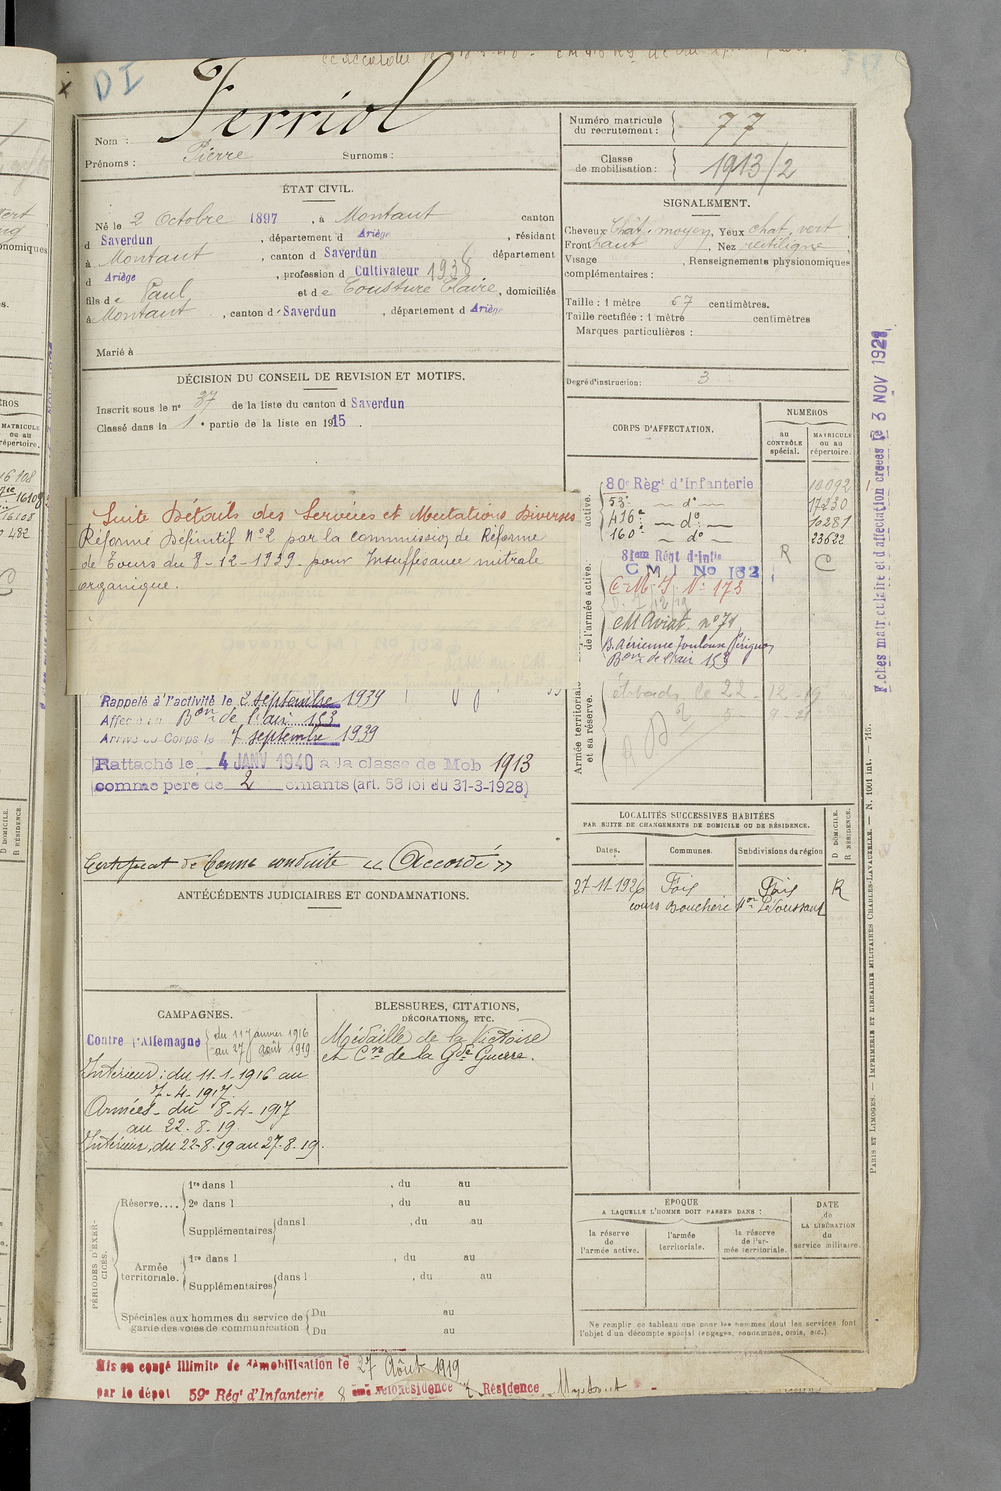 DI
Ferriol
Nom :
Prénoms : Pierre Surnoms :
Numéro matricule du recrutement : 77
Classe de mobilisation : 1913/2
ÉTAT CIVIL.
Né le 2 Octobre 1897, à Montaut canton
d Saverdun, département d Ariège, résidant
à Montaut, canton d Saverdun département
d Ariège, profession d Cultivateur 1938
fils de Paul et de Cousture Claire, domiciliés
à Montaut, canton d Saverdun, département d Ariège
Marié à
SIGNALEMENT.
Cheveux chât. moyen, Yeux chat. vert
Front haut, Nez rectiligne
Visage , Renseignements physionomiques
complémentaires :
Taille : 1 mètre 67 centimètres.
Taille rectifiée : 1 mètre centimètres
Marques particulières :
Degré d'instruction : 3
DÉCISION DU CONSEIL DE REVISION ET MOTIFS.
Inscrit sous le n° 37 de la liste du canton d Saverdun
Classé dans la 1e partie de la liste en 1915.
Suite Détails des Services et Mutations Diverses
Réforme Définitif N°2 par la commission de Réforme
de Tours du 8-12-1939 pour Insuffisance mitrale
organique.
Rappelé à l'activité le 2 septembre 1939
Affecté au Bon de l'air 153
Arrivé au Corps le 7 septembre 1939
Rattaché le 4 JANV 1940 à la classe de Mob 1913
comme père de 2 enfants (art. 58 loi du 31-3-1928)
Certificat de bonne conduite « Accordé »
CORPS D'AFFECTATION.
NUMÉROS
au CONTRÔLE spécial.
MATRICULE ou au répertoire.
active.
80e Régt d'Infanterie 10092
53e — do — 17230
416e — do — 10281
160e — do — 23622
de l'armée active.
81eme Régt d'Infie
C M I No 162 R C
C.M.I. N° 173
CM Aviat. n° 74
B. Aérienne Toulouse Périgno
Bon de l'air 153
Armée territoriale et sa réserve.
le 22-12-19
LOCALITÉS SUCCESSIVES HABITÉES
PAR SUITE DE CHANGEMENTS DE DOMICILE OU DE RÉSIDENCE.
Dates. Communes. Subdivisions de région
D DOMICILE.
R RÉSIDENCE.
27-11-1926 Foix Foix R
cours Bouchère
ANTÉCÉDENTS JUDICIAIRES ET CONDAMNATIONS.
CAMPAGNES.
Contre l'Allemagne du 11 janvier 1916
au 27 août 1919
Intérieur : du 11-1-1916 au
7-4-1917.
Armées- du 8-4-1917
au 22.8.19.
Intérieur, du 22-8-19 au 27-8-19.
BLESSURES, CITATIONS,
DÉCORATIONS, ETC.
Médaille de la Victoire
et Cve de la Gde Guerre.
PÉRIODES D'EXERCICES.
Réserve....
1re dans l , du au
2e dans l , du au
Supplémentaires dans l , du au
Armée territoriale.
1re dans l , du au
Supplémentaires dans l , du au
Spéciales aux hommes du service de garde des voies de communication
Du au
Du au
ÉPOQUE
A LAQUELLE L'HOMME DOIT PASSER DANS :
la réserve de l'armée active.
l'armée territoriale.
la réserve de l'armée territoriale.
DATE de LA LIBÉRATION du service militaire.
Ne remplir ce tableau que pour les hommes dont les services font
l'objet d'un décompte spécial (engagés, condamnés, omis, etc.)
Mis en congé illimité de démobilisation le 27 Août 1919
par le dépôt 59e Régt d'Infanterie Résidence Montaut
Fiches matriculaire et d'affectation créées le 3 NOV 1921
PARIS ET LIMOGES. — IMPRIMERIE ET LIBRAIRIE MILITAIRES CHARLES-LAVAUZELLE. — N. 1001 int. — 715.